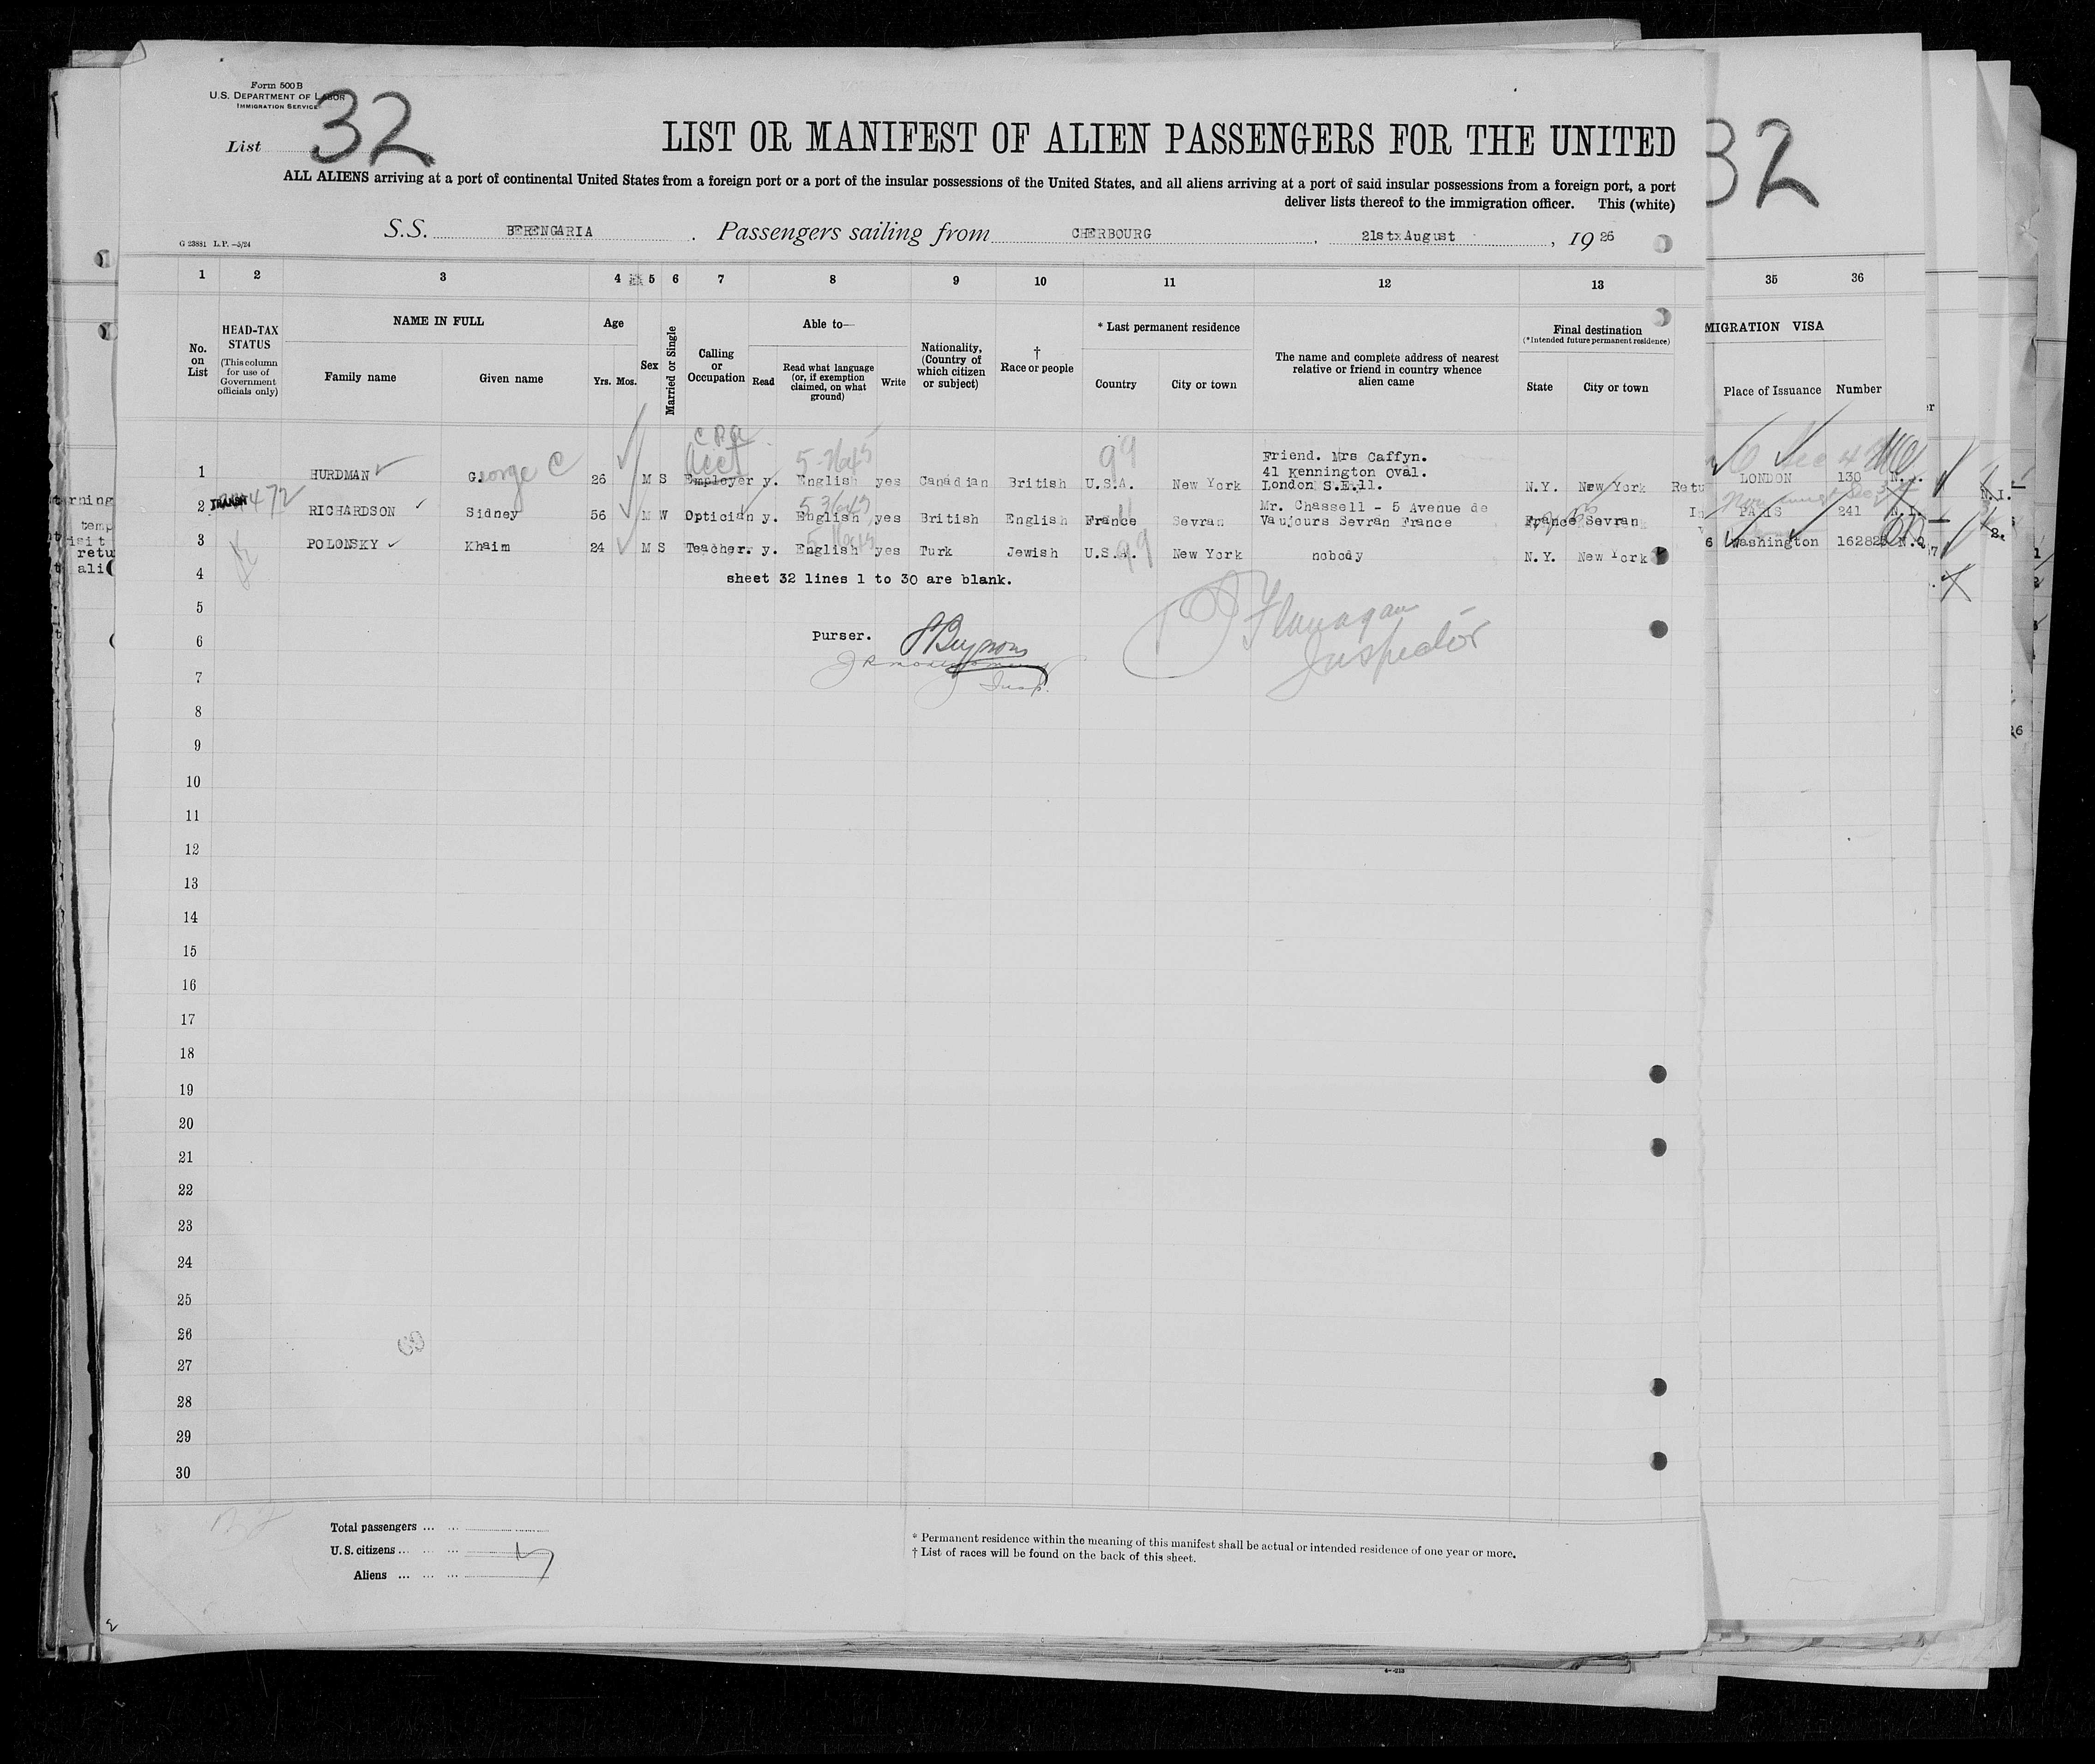 Form 500 B
U.S. DEPARTMENT OF LABOR
IMMIGRATION SERVICE
List 32
LIST OR MANIFEST OF ALIEN PASSENGERS FOR THE UNITED
ALL ALIENS arriving at a port of continental United States from a foreign port or a port of the insular possessions of the United States, and all aliens arriving at a port of said insular possessions from a foreign port, a port
deliver lists thereof to the immigration officer. This (white)
G 23881 L.P. —5/24
S.S. BERENGARIA. Passengers sailing from CHERBOURG, 21stxAugust, 19 26
32
1 2 3 4 5 6 7 8 9 10 11 12 13 35 36
No. on List
HEAD-TAX STATUS
(This column for use of Government officials only)
NAME IN FULL
Family name Given name
Age
Yrs. Mos.
Sex
Married or Single
Calling or Occupation
Able to—
Read
Read what language (or, if exemption claimed, on what ground)
Write
Nationality, (Country of which citizen or subject)
† Race or people
* Last permanent residence
Country City or town
The name and complete address of nearest relative or friend in country whence alien came
Final destination
(*Intended future permanent residence)
State City or town
MIGRATION VISA
Place of Issuance Number
CPA
Acct
1 HURDMAN George C 26 M S Employer y. English yes Canadian British U.S.A. New York Friend. Mrs Caffyn. 41 Kennington Oval. London S.E.11. N.Y. New York Retu LONDON 130
99
2 TRANSIT 472 RICHARDSON Sidney 56 M W Optician y. English yes British English France Sevran Mr. Chassell - 5 Avenue de Vaujours Sevran France France Sevran In PARIS 241 N.I.
3 POLONSKY Khaim 24 M S Teacher. y. English yes Turk Jewish U.S.A. New York nobody N.Y. New York 6 Washington 162825 N.Q.
99
4 sheet 32 lines 1 to 30 are blank.
5
6 Purser.
Flanagan
Inspector
Insp.
7
8
9
10
11
12
13
14
15
16
17
18
19
20
21
22
23
24
25
26
27
28
29
30
Total passengers ... ...
U. S. citizens ... ... ...
Aliens ... ... ...
* Permanent residence within the meaning of this manifest shall be actual or intended residence of one year or more.
† List of races will be found on the back of this sheet.